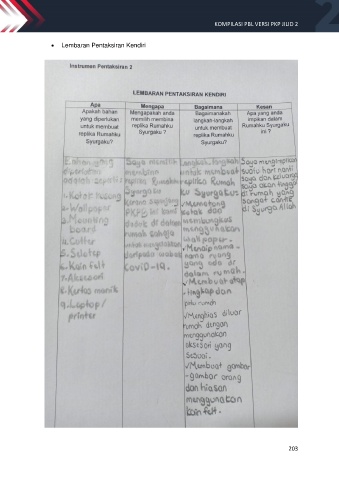 KOMPILASI PBL VERSI PKP JILID 2
• Lembaran Pentaksiran Kendiri
Instrumen Pentaksiran 2
LEMBARAN PENTAKSIRAN KENDIRI
Apa
Apakah bahan
yang diperlukan
untuk membuat
replika Rumahku
Syurgaku?
Mengapa
Mengapakah anda
memilih membina
replika Rumahku
Syurgaku ?
Bagaimana
Bagaimanakah
langkah-langkah
untuk membuat
replika Rumahku
Syurgaku?
Kesan
Apa yang anda
impikan dalam
Rumahku Syurgaku
ini ?
diperlukan
adalah seperti
1. Kotak
2. Wallpaper
3. Mounting
board
4. Cutter
5. Selotep
6. Kain felt
7. Aksesori
8. Kertas manik
9. Laptop/
printer
Saya memilih
membina
replika Rumahku
Syurgaku
kerana semasa
PKPB ini kami
duduk di dalam
rumah sahaja
untuk mengelakkan
daripada wabak
COVID-19.
Langkah-langkah
untuk membuat
replika Rumah
ku Syurgaku
✓Memotong
kotak dan
membungkus
menggunakan
wallpaper.
✓Menaip nama-
nama ruang
yang ada di
dalam rumah.
✓Membuat atap
tingkap dan
pintu rumah
✓Menghias diluar
rumah dengan
menggunakan
aksesori yang
sesuai.
✓Membuat gambar
-gambar orang
dan hiasan
menggunakan
kain felt.
Saya mengimpikan
suatu hari nanti
saya dan keluarga
saya akan tinggal
di rumah yang
sangat cantik
di Syurga Allah
203